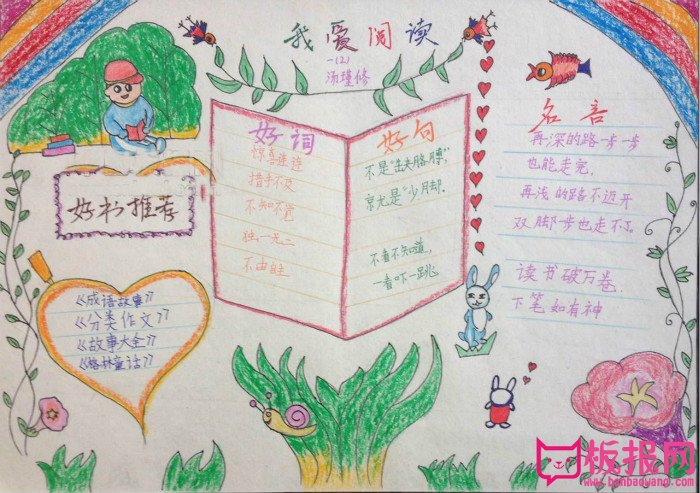 我爱阅读
一(2)
汤瑾修
好词
惊喜连连
措手不及
不知不觉
独一无二
不由自主
好句
不是"缺胳膊",
就是"少腿"。
不看不知道,
一看吓一跳
名言
再深的路一步一步
也能走完,
再浅的路不迈开
双脚步也走不了。
读书破万卷
下笔如有神
好书推荐
《成语故事》
《分类作文》
《故事大全》
《格林童话》
板报网
www.banbaowang.com